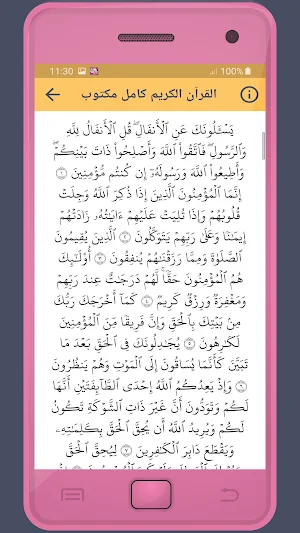 11:30 100%
القرآن الكريم كامل مكتوب
يَسْـَٔلُونَكَ عَنِ ٱلْأَنفَالِ ۖ قُلِ ٱلْأَنفَالُ لِلَّهِ
وَٱلرَّسُولِ ۖ فَٱتَّقُوا۟ ٱللَّهَ وَأَصْلِحُوا۟ ذَاتَ بَيْنِكُمْ ۖ
وَأَطِيعُوا۟ ٱللَّهَ وَرَسُولَهُۥٓ إِن كُنتُم مُّؤْمِنِينَ ١
إِنَّمَا ٱلْمُؤْمِنُونَ ٱلَّذِينَ إِذَا ذُكِرَ ٱللَّهُ وَجِلَتْ
قُلُوبُهُمْ وَإِذَا تُلِيَتْ عَلَيْهِمْ ءَايَـٰتُهُۥ زَادَتْهُمْ
إِيمَـٰنًا وَعَلَىٰ رَبِّهِمْ يَتَوَكَّلُونَ ٢ ٱلَّذِينَ يُقِيمُونَ
ٱلصَّلَوٰةَ وَمِمَّا رَزَقْنَـٰهُمْ يُنفِقُونَ ٣ أُو۟لَـٰٓئِكَ
هُمُ ٱلْمُؤْمِنُونَ حَقًّا ۚ لَّهُمْ دَرَجَـٰتٌ عِندَ رَبِّهِمْ
وَمَغْفِرَةٌ وَرِزْقٌ كَرِيمٌ ٤ كَمَآ أَخْرَجَكَ رَبُّكَ
مِنۢ بَيْتِكَ بِٱلْحَقِّ وَإِنَّ فَرِيقًا مِّنَ ٱلْمُؤْمِنِينَ
لَكَـٰرِهُونَ ٥ يُجَـٰدِلُونَكَ فِى ٱلْحَقِّ بَعْدَ مَا
تَبَيَّنَ كَأَنَّمَا يُسَاقُونَ إِلَى ٱلْمَوْتِ وَهُمْ يَنظُرُونَ
٦ وَإِذْ يَعِدُكُمُ ٱللَّهُ إِحْدَى ٱلطَّآئِفَتَيْنِ أَنَّهَا
لَكُمْ وَتَوَدُّونَ أَنَّ غَيْرَ ذَاتِ ٱلشَّوْكَةِ تَكُونُ
لَكُمْ وَيُرِيدُ ٱللَّهُ أَن يُحِقَّ ٱلْحَقَّ بِكَلِمَـٰتِهِۦ
وَيَقْطَعَ دَابِرَ ٱلْكَـٰفِرِينَ ٧ لِيُحِقَّ ٱلْحَقَّ